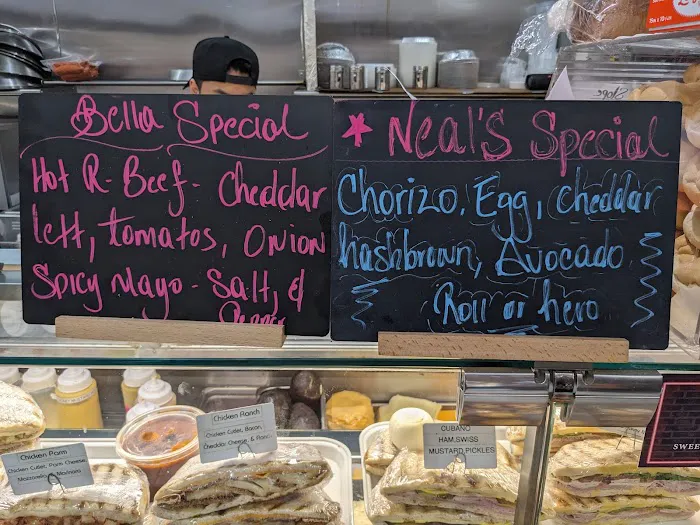 Bella Special
Hot R-Beef- cheddar
lett, tomatos, Onion
Spicy Mayo - Salt, &
Pepper
Neal's Special
Chorizo, Egg, cheddar
hashbrown, Avocado
Roll or hero
Chicken Parm
Chicken Cutlet, Parm Cheese
Chicken Ranch
Chicken Cutlet, Bacon,
Cheddar Cheese, & Ranch
CUBANO
HAM, SWISS
MUSTARD, PICKLES
SWEE